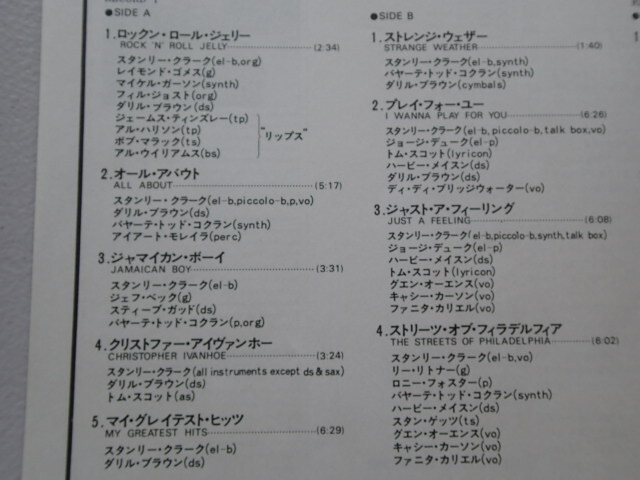 ●SIDE A
1.ロックン・ロール・ジェリー
ROCK 'N' ROLL JELLY (2:34)
スタンリー・クラーク(el-b,org)
レイモンド・ゴメス(g)
マイケル・ガーソン(synth)
フィル・ジョスト(org)
ダリル・ブラウン(ds)
ジェームス・ティンズレー(tp)
アル・ハリソン(tp)
ボブ・マラック(ts)
アル・ウイリアムス(bs)
"リップス"
2.オール・アバウト
ALL ABOUT (5:17)
スタンリー・クラーク(el-b,piccolo-b,p,vo)
ダリル・ブラウン(ds)
バヤーテ・トッド・コクラン(synth)
アイアート・モレイラ(perc)
3.ジャマイカン・ボーイ
JAMAICAN BOY (3:31)
スタンリー・クラーク(el-b)
ジェフ・ベック(g)
スティーブ・ガッド(ds)
バヤーテ・トッド・コクラン(p,org)
4.クリストファー・アイヴァンホー
CHRISTOPHER IVANHOE (3:24)
スタンリー・クラーク(all instruments except ds & sax)
ダリル・ブラウン(ds)
トム・スコット(as)
5.マイ・グレイテスト・ヒッツ
MY GREATEST HITS (6:29)
スタンリー・クラーク(el-b)
ダリル・ブラウン(ds)
●SIDE B
1.ストレンジ・ウェザー
STRANGE WEATHER (1:40)
スタンリー・クラーク(el-b,synth)
バヤーテ・トッド・コクラン(synth)
ダリル・ブラウン(cymbals)
2.プレイ・フォー・ユー
I WANNA PLAY FOR YOU (6:26)
スタンリー・クラーク(el-b,piccolo-b,talk box,vo)
ジョージ・デューク(el-p)
トム・スコット(lyricon)
ハービー・メイスン(ds)
ダリル・ブラウン(ds)
ディ・ディ・ブリッジウォーター(vo)
3.ジャスト・ア・フィーリング
JUST A FEELING (6:08)
スタンリー・クラーク(el-b,piccolo-b,synth,talk box)
ジョージ・デューク(el-p)
ハービー・メイスン(ds)
トム・スコット(lyricon)
グエン・オーエンス(vo)
キャシー・カーソン(vo)
ファニタ・カリエル(vo)
4.ストリーツ・オブ・フィラデルフィア
THE STREETS OF PHILADELPHIA (6:02)
スタンリー・クラーク(el-b,vo)
リー・リトナー(g)
ロニー・フォスター(p)
バヤーテ・トッド・コクラン(synth)
ハービー・メイスン(ds)
スタン・ゲッツ(ts)
グエン・オーエンス(vo)
キャシー・カーソン(vo)
ファニタ・カリエル(vo)